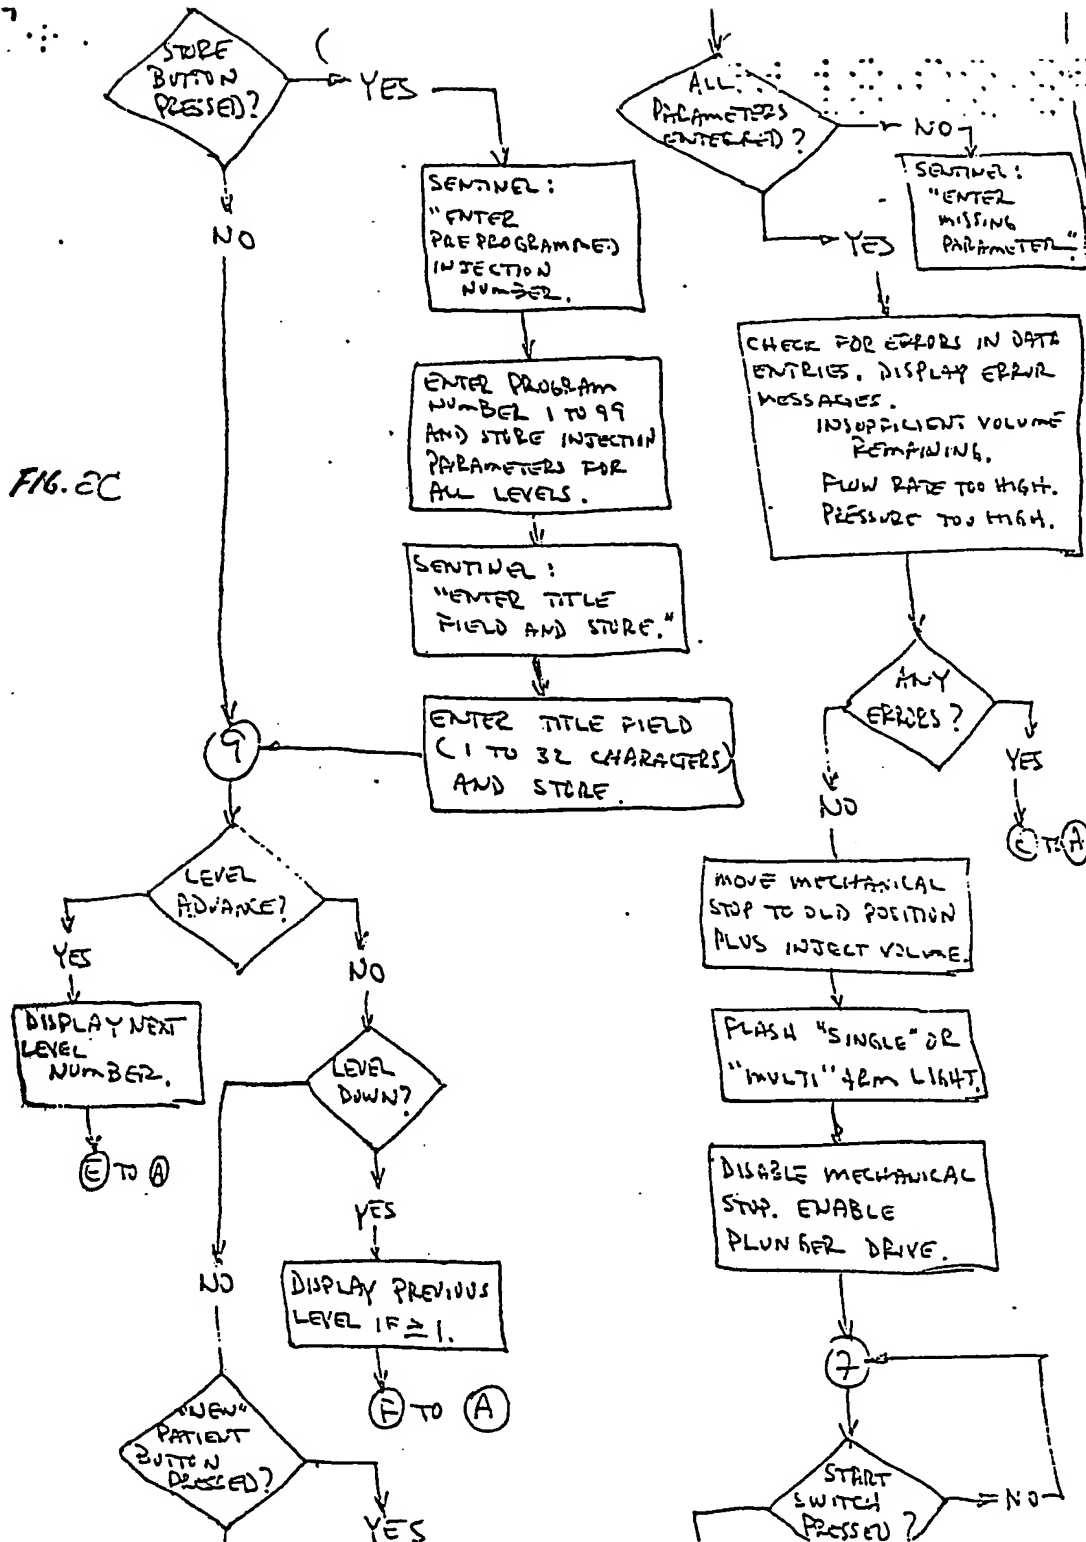 STORE
BUTTON
PRESSED?
YES
NO
SENTINEL:
"ENTER
PREPROGRAMMED
INJECTION
NUMBER.
ENTER PROGRAM
NUMBER 1 TO 99
AND STORE INJECTION
PARAMETERS FOR
ALL LEVELS.
SENTINEL:
"ENTER TITLE
FIELD AND STORE."
ENTER TITLE FIELD
(1 TO 32 CHARACTERS)
AND STORE.
FIG. 2C
9
LEVEL
ADVANCE?
YES
NO
DISPLAY NEXT
LEVEL
NUMBER.
E TO A
LEVEL
DOWN?
YES
NO
DISPLAY PREVIOUS
LEVEL IF ≥ 1.
F TO A
"NEW"
PATIENT
BUTTON
PRESSED?
YES
ALL
PARAMETERS
ENTERED?
NO
YES
SENTINEL:
"ENTER
MISSING
PARAMETER."
CHECK FOR ERRORS IN DATA
ENTRIES. DISPLAY ERROR
MESSAGES.
INSUFFICIENT VOLUME
REMAINING.
FLOW RATE TOO HIGH.
PRESSURE TOO HIGH.
ANY
ERRORS?
YES
NO
C TO A
MOVE MECHANICAL
STOP TO OLD POSITION
PLUS INJECT VOLUME.
FLASH "SINGLE" OR
"MULTI" ARM LIGHT.
DISABLE MECHANICAL
STOP. ENABLE
PLUNGER DRIVE.
7
START
SWITCH
PRESSED?
NO